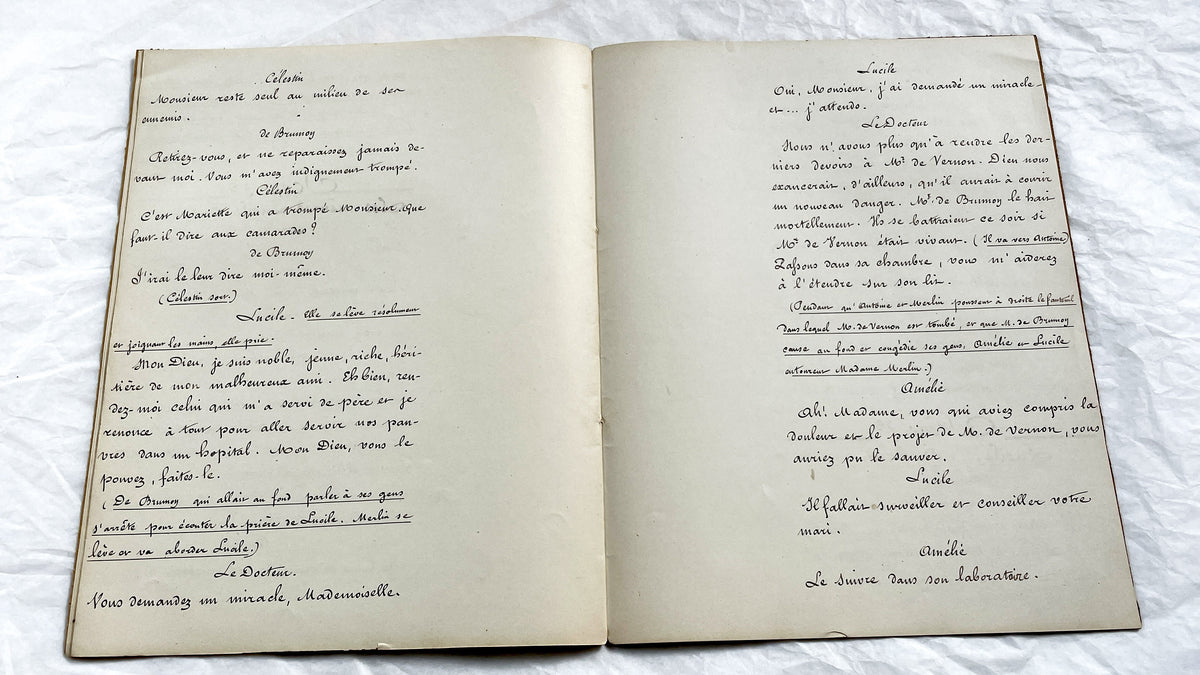 Célestin
Monsieur reste seul au milieu de ses
ennemis.
de Brumoy
Retirez-vous, et ne reparaissez jamais de-
vant moi. Vous m'avez indignement trompé.
Célestin
C'est Mariette qui a trompé Monsieur. Que
faut-il dire aux camarades?
de Brumoy
J'irai le leur dire moi-même.
(Célestin sort.)
Lucile - Elle se lève résolument
et joignant les mains, elle prie.
Mon Dieu, je suis noble, jeune, riche, héri-
tière de mon malheureux ami. Eh bien, ren-
dez-moi celui qui m'a servi de père et je
renonce à tout pour aller servir nos pau-
vres dans un hopital. Mon Dieu, vous le
pouvez, faites-le.
(De Brumoy qui allait au fond parler à ses gens
s'arrête pour écouter la prière de Lucile. Merlin se
lève et va aborder Lucile.)
Le Docteur.
Vous demandez un miracle, Mademoiselle.
Lucile
Oui, Monsieur, j'ai demandé un miracle
et... j'attends.
Le Docteur
Nous n'avons plus qu'à rendre les der-
niers devoirs à Mr. de Vernon. Dieu nous
exaucerait, d'ailleurs, qu'il aurait à courir
un nouveau danger. Mr. de Brumoy le hait
mortellement. Ils se battraient ce soir si
Mr. de Vernon était vivant. (Il va vers Antoine)
Passons dans sa chambre, vous m'aiderez
à l'étendre sur son lit.
(Pendant qu'Antoine et Merlin poussent à droite le fauteuil
dans lequel M. de Vernon est tombé, et que M. de Brumoy
cause au fond et congédie ses gens, Amélie et Lucile
entourent Madame Merlin.)
Amélie
Ah! Madame, vous qui aviez compris la
douleur et le projet de M. de Vernon, vous
auriez pu le sauver.
Lucile
Il fallait surveiller et conseiller votre
mari.
Amélie
Le suivre dans son laboratoire.